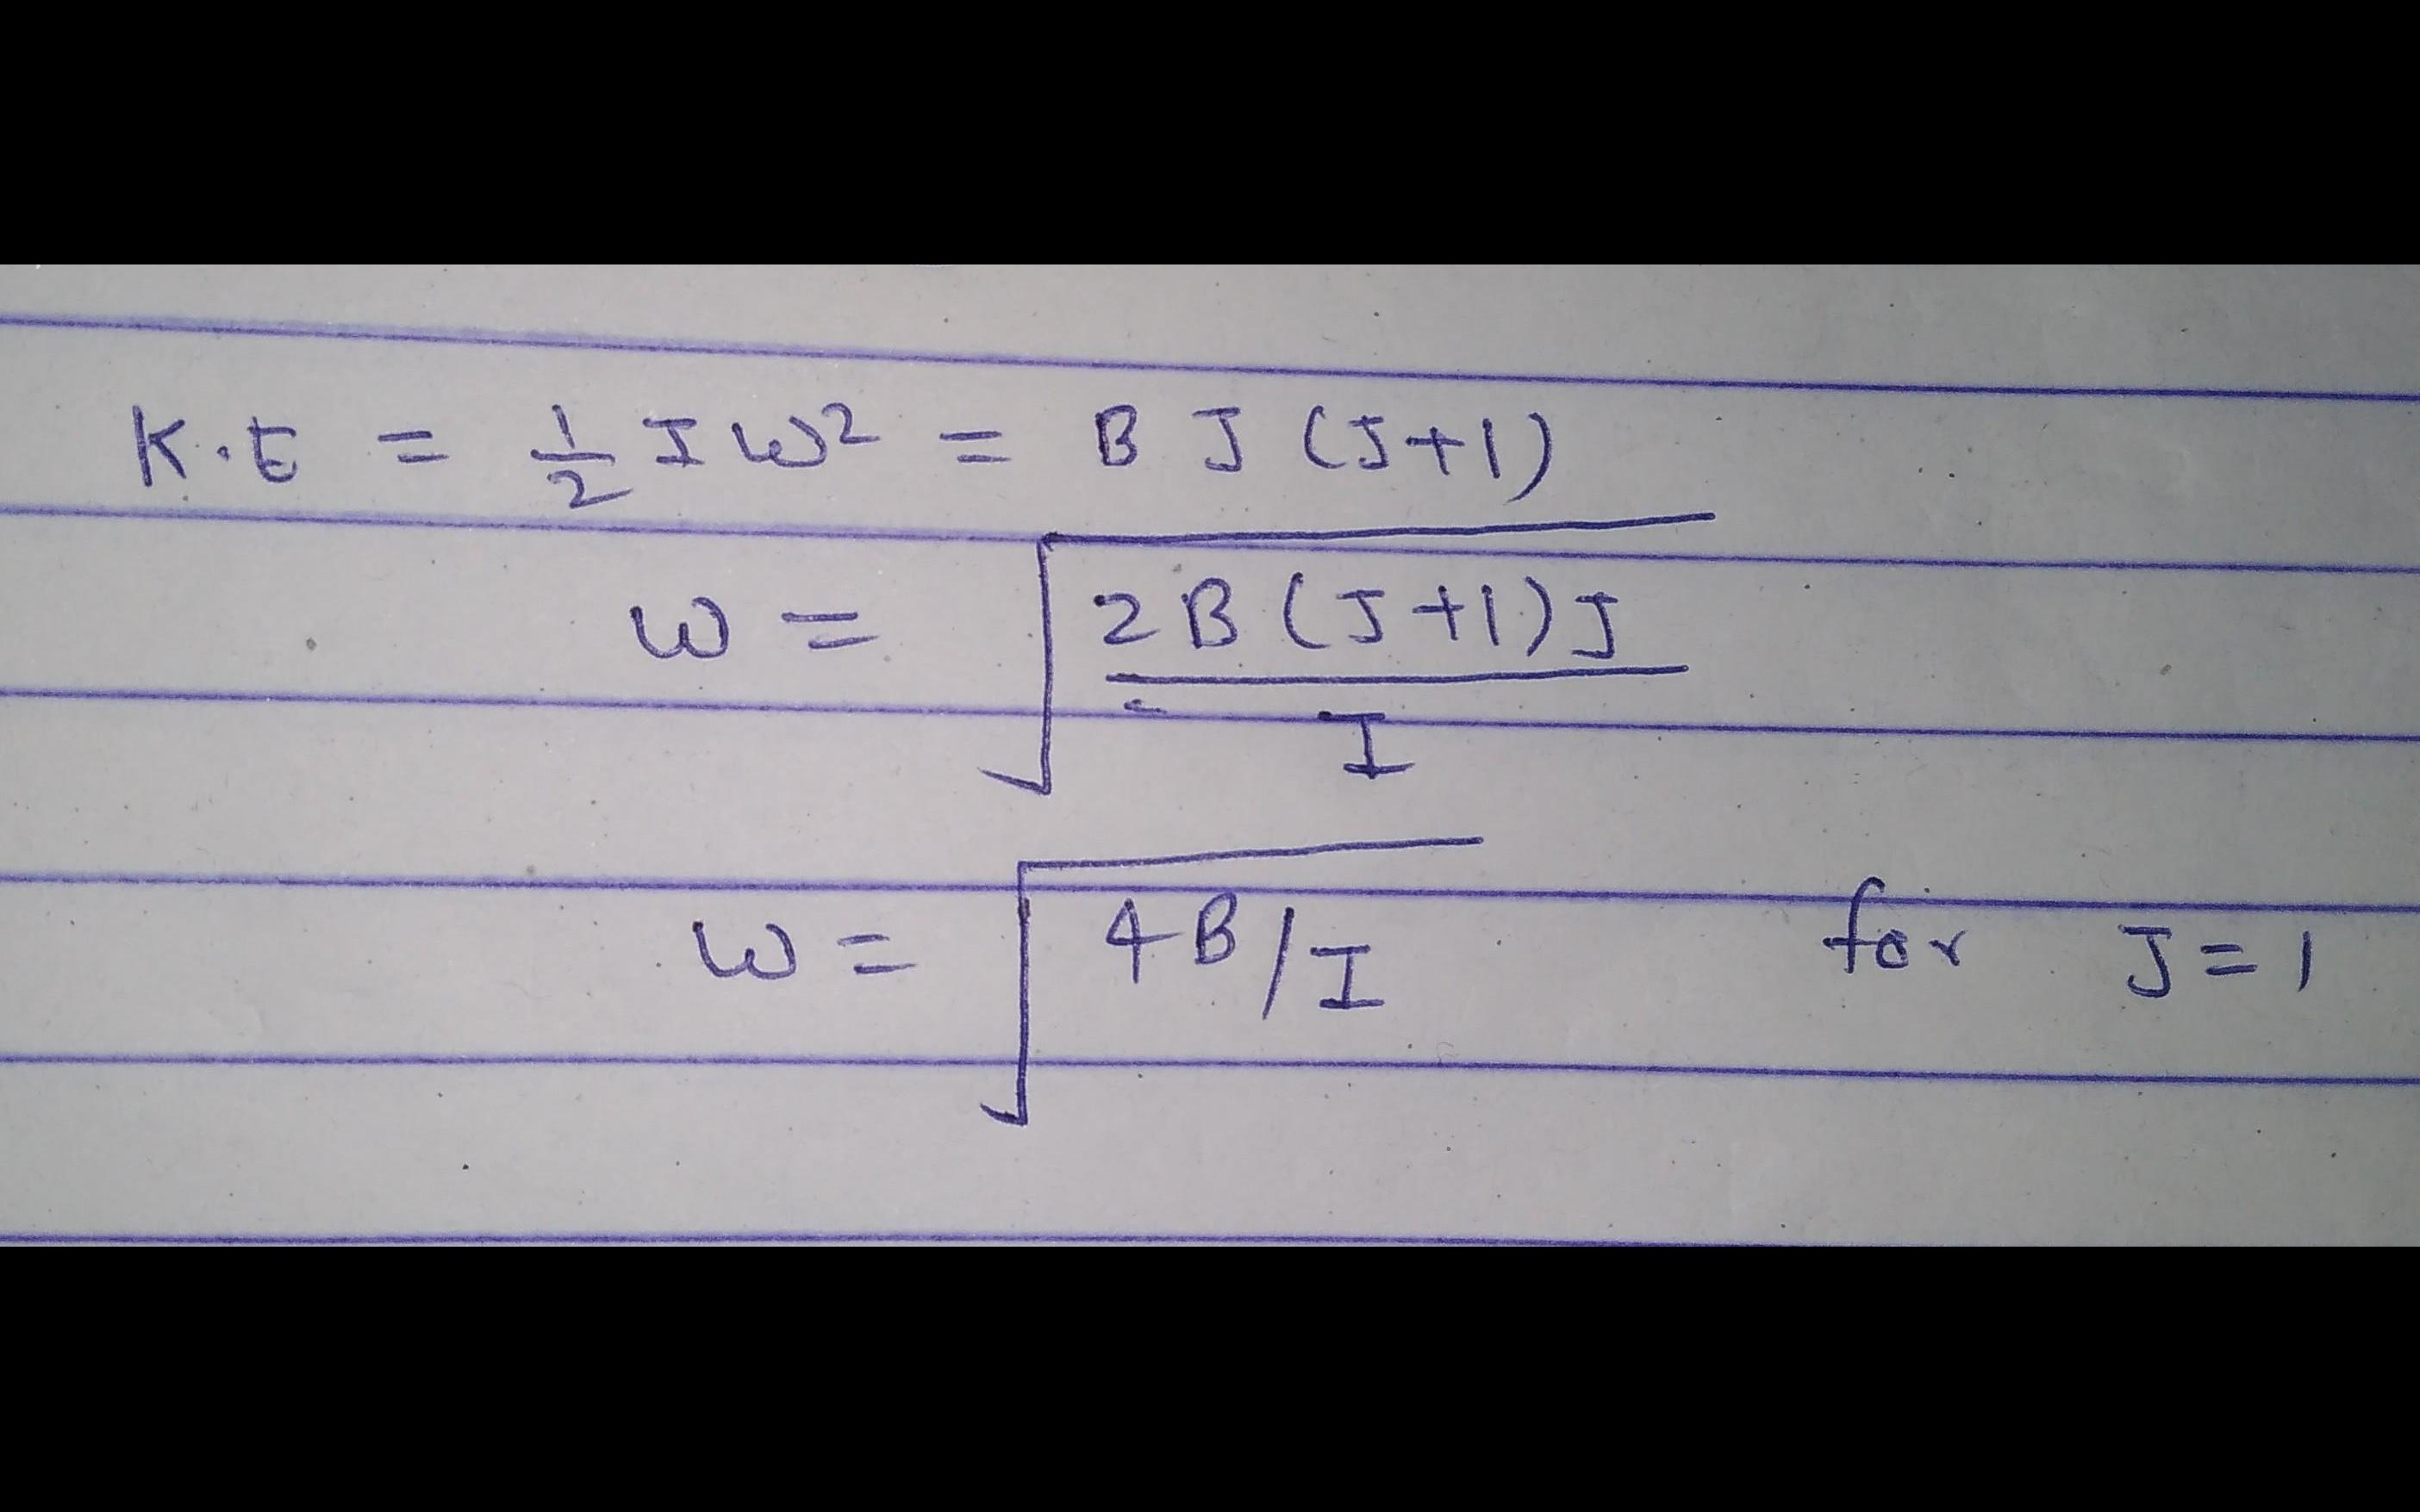 K.E = 1/2 I ω² = B J (J+1)
ω = √(2B(J+1)J / I)
ω = √(4B/I) for J=1